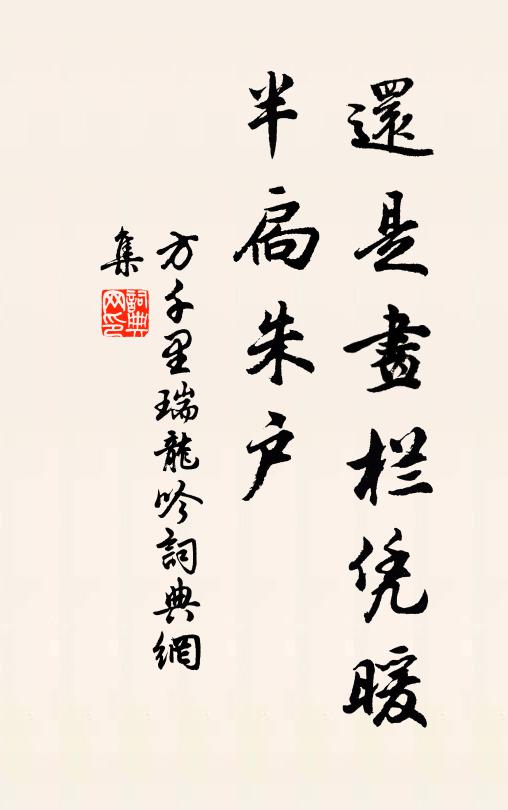 還是畫栏凭暖
半扃朱户
方千里瑞龍吟詞典網
集
詞典
网印